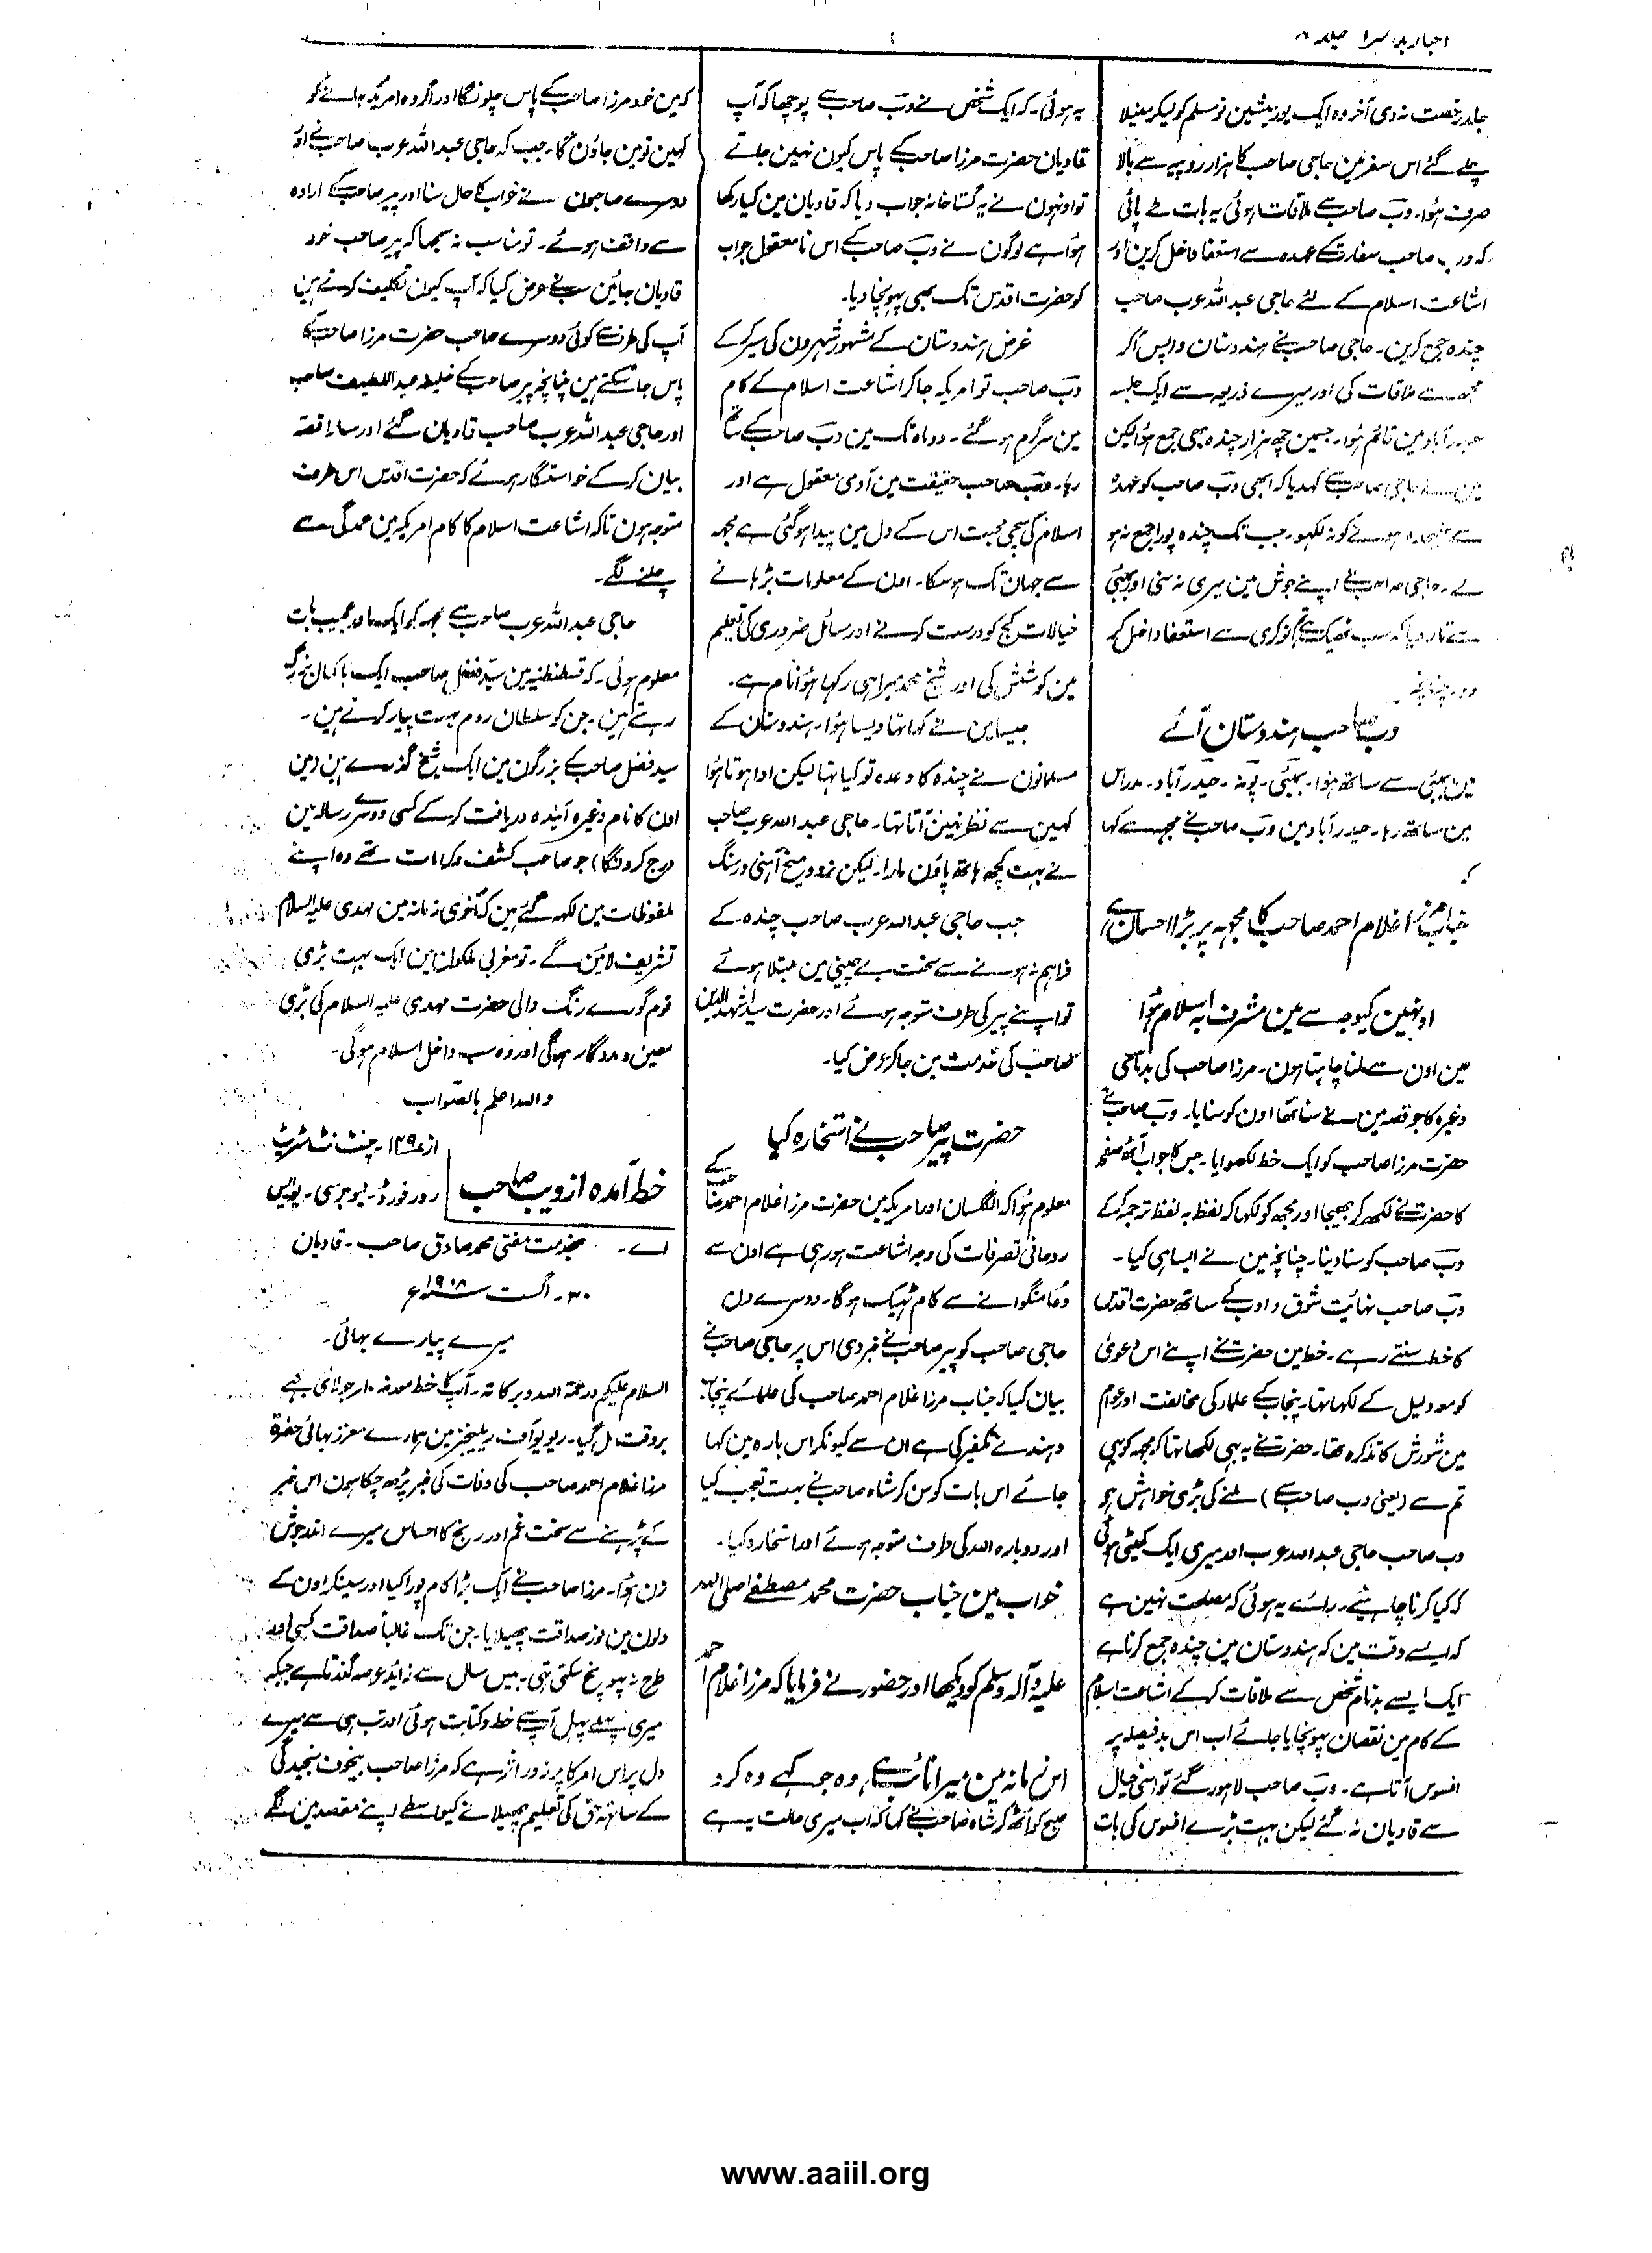 اخبار بدر نمبرا جلد ۸
جلد رخصت نہ دی آخر وہ ایک یوریشین نومسلم کو لیکر منیلا
چلے گئے اس سفر مین حاجی صاحب کا ہزار روپیہ سے بالا
صرف ہؤا۔ وب صاحب سے ملاقات ہوئی یہ بات طے پائی
کہ وب صاحب سفارت کے عہدہ سے استعفا داخل کرین اور
اشاعت اسلام کے لئے حاجی عبد اللہ عرب صاحب
چندہ جمع کرین۔ حاجی صاحب نے ہندوستان واپس آکر
مجھ سے ملاقات کی اور میرے ذریعہ سے ایک جلسہ
حیدرآباد مین قائم ہؤا۔ جسمین چھ ہزار چندہ بھی جمع ہؤا لیکن
مین نے حاجی صاحب سے کہدیا کہ ابھی وب صاحب کو عہدہ
سے علیحدہ ہونے کو نہ لکھو۔ جب تک چندہ پورا جمع نہ ہو
لے۔ حاجی صاحب نے اپنے جوش مین میری نہ سنی اور بمبئی
سے تار دیا کہ سب ٹھیک ہے نوکری سے استعفا داخل کر
دو۔ چنانچہ
وب صاحب ہندوستان آئے
مین بمبئی سے ساتھ ہؤا۔ بمبئی۔ پونہ۔ حیدرآباد۔ مدراس
مین ساتھ رہا۔ حیدرآباد مین وب صاحب نے مجھ سے کہا
کہ
جناب مرزا غلام احمد صاحب کا مجھ پر بڑا احسان ہے
اونہین کیوجہ سے مین مشرف بہ اسلام ہؤا
مین اون سے ملنا چاہتا ہون۔ مرزا صاحب کی بدنامی
وغیرہ کا جو قصہ مین نے سنا تھا اون کو سنایا۔ وب صاحب نے
حضرت مرزا صاحب کو ایک خط لکھوایا۔ جس کا جواب آٹھ صفحہ
کا حضرت نے لکھ کر بھیجا اور مجھ کو لکھا کہ لفظ بہ لفظ ترجمہ کر کے
وب صاحب کو سنا دینا۔ چنانچہ مین نے ایسا ہی کیا۔
وب صاحب نہایت شوق و ادب کے ساتھ حضرت اقدس
کا خط سنتے رہے۔ خط مین حضرت نے اپنے اس دعویٰ
کو معہ دلیل کے لکھا تھا۔ پنجاب کے علماء کی مخالفت اور عوام
مین شورش کا تذکرہ تھا۔ حضرت نے یہ بھی لکھا تھا کہ مجھ کو بھی
تم سے (یعنی وب صاحب سے) ملنے کی بڑی خواہش ہے
وب صاحب حاجی عبد اللہ عرب اور میری ایک کمیٹی ہوئی
کہ کیا کرنا چاہئے۔ رائے یہ ہوئی کہ مصلحت نہین ہے
کہ ایسے وقت مین کہ ہندوستان مین چندہ جمع کرنا ہے
ایک ایسے بدنام شخص سے ملاقات کر کے اشاعت اسلام
کے کام مین نقصان پہونچایا جائے اب اس بد فیصلہ پر
افسوس آتا ہے۔ وب صاحب لاہور گئے تو اسی خیال
سے قادیان نہ گئے لیکن بہت بڑے افسوس کی بات
یہ ہوئی۔ کہ ایک شخص نے وب صاحب سے پوچھا کہ آپ
قادیان حضرت مرزا صاحب کے پاس کیون نہین جاتے
تو اونہون نے یہ گستاخانہ جواب دیا کہ قادیان مین کیا رکھا
ہؤا ہے لوگون نے وب صاحب کے اس نامعقول جواب
کو حضرت اقدس تک بھی پہونچا دیا۔
غرض ہندوستان کے مشہور شہرون کی سیر کر کے
وب صاحب تو امریکہ جاکر اشاعت اسلام کے کام
مین سرگرم ہو گئے۔ دو ماہ تک مین وب صاحب کے ساتھ
رہا۔ وب صاحب حقیقت مین آدمی معقول ہے اور
اسلام کی سچی محبت اس کے دل مین پیدا ہوگئی ہے مجھ
سے جہان تک ہو سکا۔ اون کے معلومات بڑہانے
خیالات کج کو درست کرنے اور مسائل ضروری کی تعلیم
مین کوشش کی اور شیخ محمد میرا ہی رکھا ہؤا نام ہے۔
جیسا مین نے کہا تھا ویسا ہؤا۔ ہندوستان کے
مسلمانون نے چندہ کا وعدہ تو کیا تھا لیکن ادا ہوتا ہؤا
کہین سے نظر نہین آتا تھا۔ حاجی عبد اللہ عرب صاحب
نے بہت کچھ ہاتھ پاؤن مارا۔ لیکن نرود میخ آہنی در سنگ
جب حاجی عبد اللہ عرب صاحب چندہ کے
فراہم نہ ہونے سے سخت بے چینی مین مبتلا ہوئے
تو اپنے پیر کی طرف متوجہ ہوئے اور حضرت سید اشہد الدین
صاحب کی خدمت مین جاکر عرض کیا۔
حضرت پیر صاحب نے استخارہ کیا
معلوم ہؤا کہ انگلستان اور امریکہ مین حضرت مرزا غلام احمد صاحب کے
روحانی تصرفات کی وجہ اشاعت ہو رہی ہے اون سے
دعا منگوانے سے کام ٹھیک ہوگا۔ دوسرے دن
حاجی صاحب کو پیر صاحب نے خبر دی اس پر حاجی صاحب نے
بیان کیا کہ جناب مرزا غلام احمد صاحب کی علمائے پنجاب
و ہند نے تکفیر کی ہے ان سے کیونکر اس بارہ مین کہا
جائے اس بات کو سن کر شاہ صاحب نے بہت تعجب کیا
اور دوبارہ اللہ کی طرف متوجہ ہوئے اور استخارہ کیا۔
خواب مین جناب حضرت محمد مصطفے صلی اللہ
علیہ وآلہ وسلم کو دیکھا اور حضور نے فرمایا کہ مرزا غلام احمد
اس زمانہ مین میرا نائب ہے، وہ جو کہے وہ کرو
صبح کو اٹھ کر شاہ صاحب نے کہا کہ اب میری حالت یہ ہے
کہ مین خود مرزا صاحب کے پاس چلونگا اور اگر وہ امریکہ جانے کو
کہین تو مین جاؤن گا۔ جب کہ حاجی عبد اللہ عرب صاحب نے اور
دوسرے صاحبون نے خواب کا حال سنا اور پیر صاحب کے ارادہ
سے واقف ہوئے۔ تو مناسب نہ سمجھا کہ پیر صاحب خود
قادیان جائین سب نے عرض کیا کہ آپ کیون تکلیف کرتے ہین
آپ کی طرف سے کوئی دوسرے صاحب حضرت مرزا صاحب کے
پاس جا سکتے ہین چنانچہ پیر صاحب کے خلیفہ عبد اللطیف صاحب
اور حاجی عبد اللہ عرب صاحب قادیان گئے اور سارا قصہ
بیان کر کے خواستگار ہوئے کہ حضرت اقدس اس طرف
متوجہ ہون تاکہ اشاعت اسلام کا کام امریکہ مین عمدگی سے
چلنے لگے۔
حاجی عبد اللہ عرب صاحب سے مجھ کو ایک اور عجیب بات
معلوم ہوئی۔ کہ قسطنطنیہ مین سید فضل صاحب ایک باکمال بزرگ
رہتے ہین۔ جن کو سلطان روم بہت پیار کرتے ہین۔
سید فضل صاحب کے بزرگون مین ایک شیخ گذرے ہین (مین
اون کا نام وغیرہ آیندہ دریافت کر کے کسی دوسرے رسالہ مین
درج کرونگا) جو صاحب کشف و کرامات تھے وہ اپنے
ملفوظات مین لکھ گئے ہین کہ آخری زمانہ مین مہدی علیہ السلام
تشریف لائین گے۔ تو مغربی ملکون مین ایک بہت بڑی
قوم گورے رنگ والی حضرت مہدی علیہ السلام کی بڑی
معین و مددگار ہوگی اور وہ سب داخل اسلام ہوگی۔
واللہ اعلم بالصواب
خط آمدہ از ویب صاحب
از ۱۴۹۔ چنٹ نٹ سٹریٹ
رور فورڈ۔ نیوجرسی۔ یوایس
اے۔ بخدمت مفتی محمد صادق صاحب۔ قادیان
۳۰۔ اگست سنہ ۱۹۰۸ء
میرے پیارے بھائی۔
السلام علیکم و رحمۃ اللہ و برکاتہ۔ آپ کا خط مورخہ ۱۰ جولائی مجھے
بروقت مل گیا۔ ریویو آف ریلیجنز مین ہمارے معزز بھائی حضرت
مرزا غلام احمد صاحب کی وفات کی خبر پڑھ چکا ہون اس خبر
کے پڑہنے سے سخت غم اور رنج کا احساس میرے اندر جوش
زن ہؤا۔ مرزا صاحب نے ایک بڑا کام پورا کیا اور سینکڑون کے
دلون مین نور صداقت پھیلایا۔ جن تک غالباً صداقت کسی اور
طرح نہ پہونچ سکتی تھی۔ بیس سال سے زائد عرصہ گذرتا ہے جبکہ
میری پہلے پہل آپ سے خط و کتابت ہوئی اور تب ہی سے میرے
دل پر اس امر کا پر زور اثر ہے کہ مرزا صاحب بیخوف سنجیدگی
کے ساتھ حق کی تعلیم پھیلانے کیواسطے اپنے مقصد مین لگے
www.aaiil.org